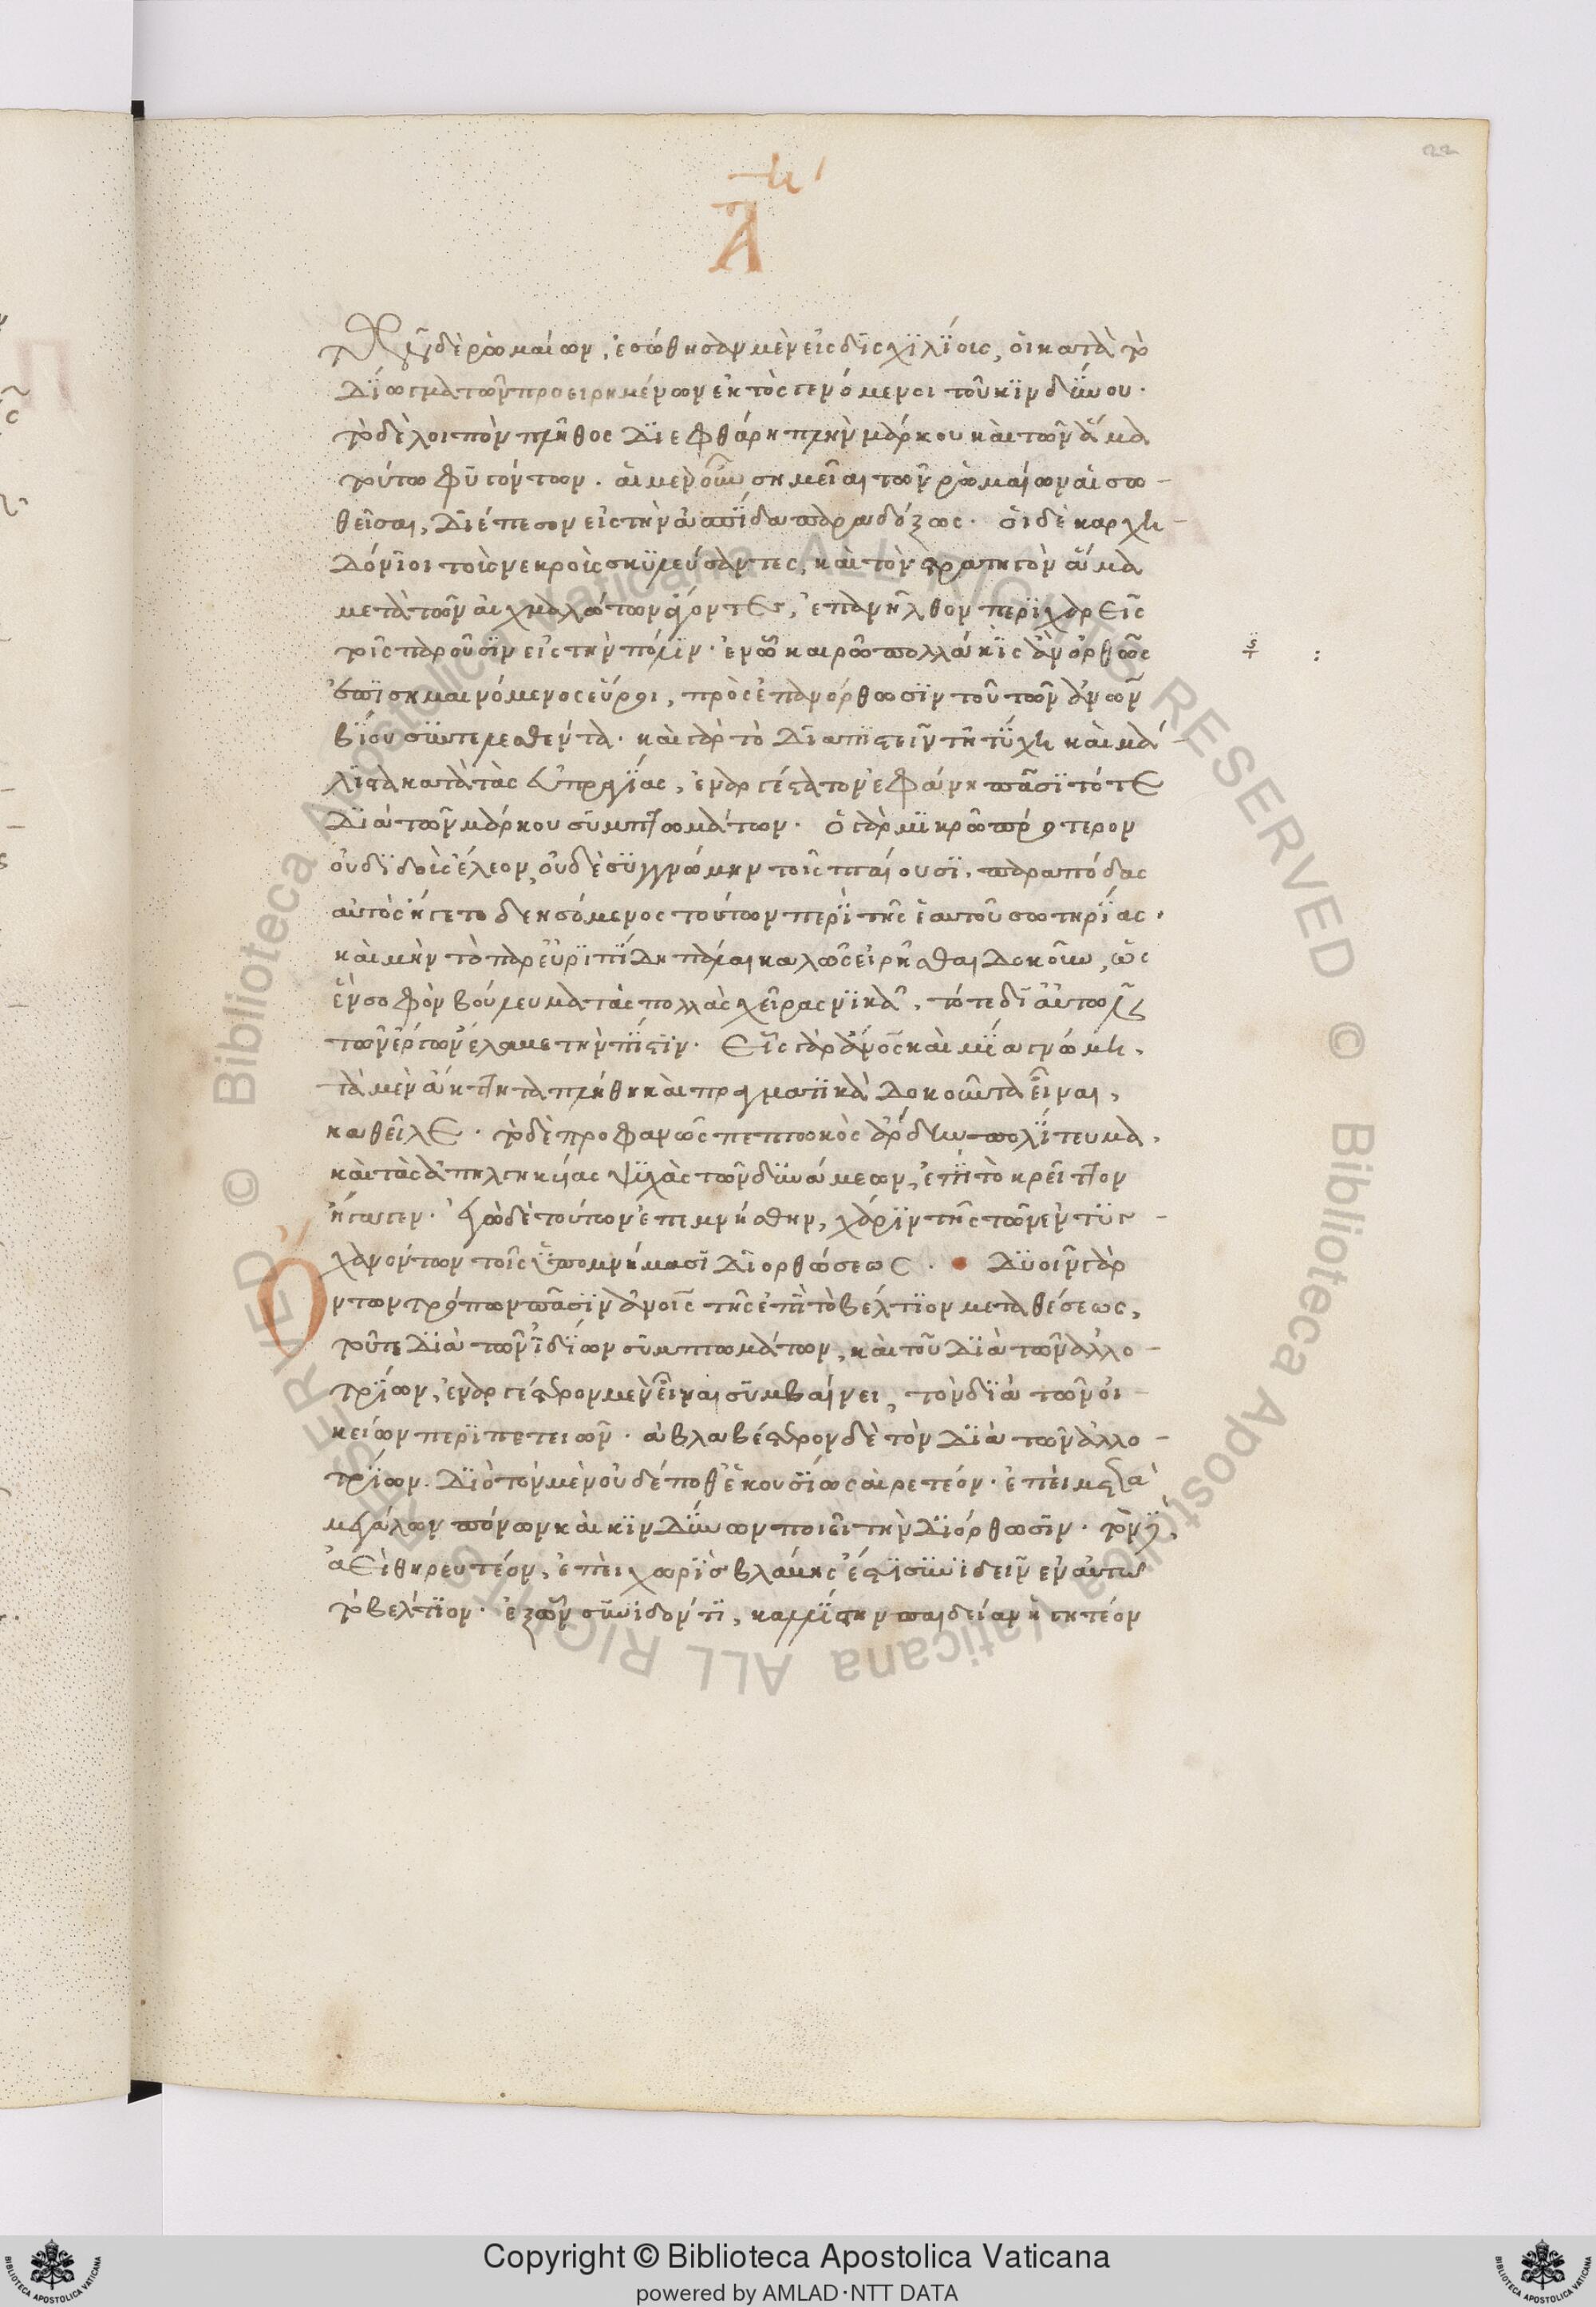 22
η'
Α
Τῶν δὲ ῥωμαίων, ἐσώθησαν μὲν εἰς δισχιλίους, οἱ κατὰ τὸ
δίωγμα τῶν προειρημένων ἐκτὸς γενόμενοι τοῦ κινδύνου·
τὸ δὲ λοιπὸν πλῆθος διεφθάρη πλὴν μάρκου καὶ τῶν ἅμα
τούτω φυγόντων. αἱ μὲν οὖν σημεῖαι τῶν ῥωμαίων αἱ σω-
θεῖσαι, διέπεσον εἰς τὴν ἀσπίδα παραδόξως. οἱ δὲ καρχη-
δόνιοι τοὺς νεκροὺς σκυλεύσαντες, καὶ τὸν στρατηγὸν ἅμα
μετὰ τῶν αἰχμαλώτων ἄγοντες, ἐπανῆλθον περιχαρεῖς
τοῖς παροῦσιν εἰς τὴν πόλιν. ἐν ᾧ καιρῶ πολλάκις ἂν ὀρθῶς
ἐπισημαινόμενος εὕροι, πρὸς ἐπανόρθωσιν τοῦ τῶν ἀνων
βίου συντελεσθέντα. καὶ γὰρ τὸ διαπιστεῖν τῆ τύχη καὶ μά-
λιστα κατὰ τὰς εὐπραγίας, ἐναργέστατον ἐφάνη πᾶσι τότε
διὰ τῶν μάρκου συμπτωμάτων. ὁ γὰρ μικρῶ πρότερον
οὐ διδοὺς ἔλεον, οὐδὲ συγγνώμην τοῖς πταίουσι. παραπόδας
αὐτὸς ἤγετο δεησόμενος τούτων περὶ τῆς ἑαυτοῦ σωτηρίας.
καὶ μὴν τὸ παρ εὐριπίδη πάλαι καλῶς εἰρῆσθαι δοκοῦν, ὡς
ἓν σοφὸν βούλευμα τὰς πολλὰς χεῖρας νικᾶ. τότε δι αὐτῶν
τῶν ἔργων ἔλαβε τὴν πίστιν. Εἷς γὰρ ἄνος καὶ μία γνώμη,
τὰ μὲν ἀήττητα πλήθη καὶ πραγματικὰ δοκοῦντα εἶναι,
καθεῖλε. τὸ δὲ προφανῶς πεπτωκὸς ἄρδην πολίτευμα,
καὶ τὰς ἀπηλγηκυίας ψυχὰς τῶν δυνάμεων, ἐπὶ τὸ κρεῖττον
ἤγαγεν. ἐγὼ δὲ τούτων ἐπεμνήσθην, χάριν τῆς τῶν ἐντυγ-
χανόντων τοῖς ὑπομνήμασι διορθώσεως. Δυοῖν γὰρ
Ὄντων τρόπων πᾶσιν ἀνοις τῆς ἐπὶ τὸ βέλτιον μεταθέσεως,
τοῦτε διὰ τῶν ἰδίων συμπτωμάτων, καὶ τοῦ διὰ τῶν ἀλλο-
τρίων, ἐναργέστερον μὲν εἶναι συμβαίνει, τὸν διὰ τῶν οἰ-
κείων περιπετειῶν. ἀβλαβέστερον δὲ τὸν διὰ τῶν ἀλλο-
τρίων. διὸ τὸν μὲν οὐδέποθ ἑκουσίως αἱρετέον. ἐπεὶ μετὰ
μεγάλων πόνων καὶ κινδύνων ποιεῖ τὴν διόρθωσιν. τὸν δ,
ἀεὶ θηρευτέον, ἐπεὶ χωρὶς βλάβης ἔστι συνιδεῖν ἐν αὐτῶ
τὸ βέλτιον. ἐξ ὧν συνιδόντι, καλλίστην παιδείαν ἡγητέον
Copyright © Biblioteca Apostolica Vaticana
powered by AMLAD·NTT DATA